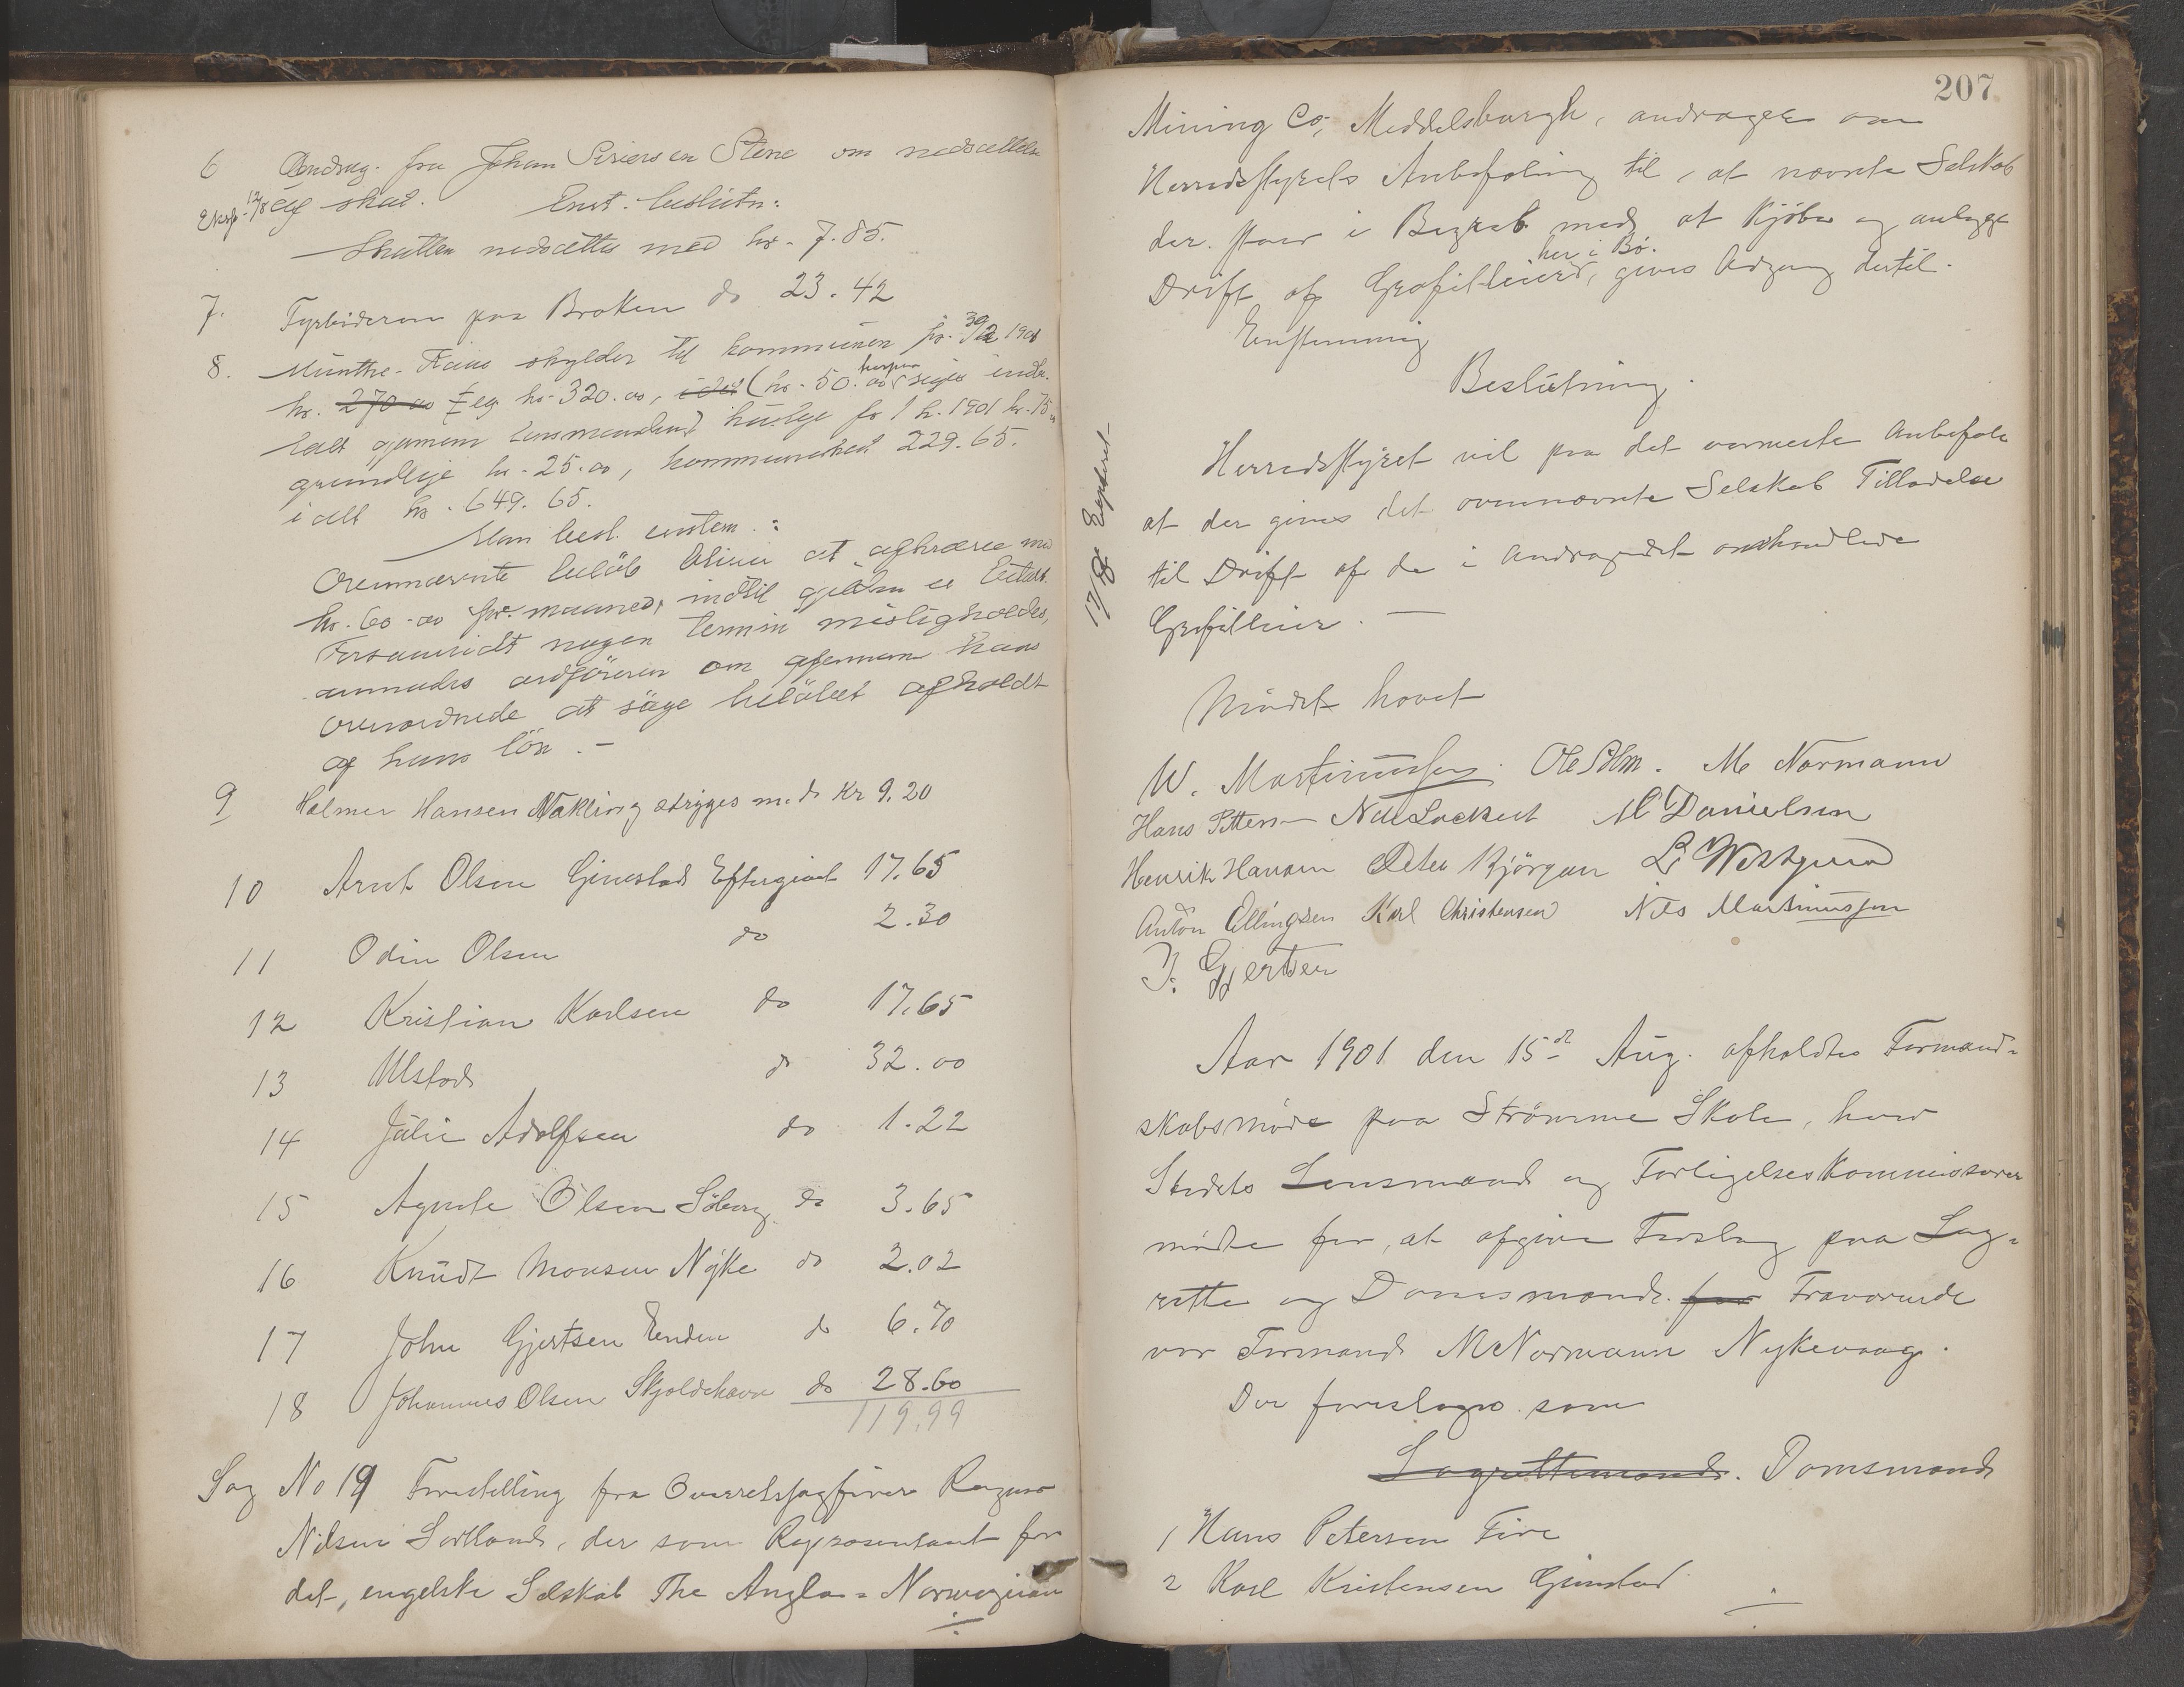 6 Andrag. fra Johan Siversen Stene om nedsættelse
Eksp. 17/8 af skat. Enst. beslutn:
Skatten nedsættes med kr. 7.85.
7. Fyrbøderen paa Braken do 23.42
8. Munthe-Kaas skylder til kommunen pr. 30/12 1901
kr. 270 00 leg kr. 320.00, (kr. 50.00 herpaa siges indb.
talt gjennem lensmanden) husleje for 1 h. 1901 kr. 75
grundleje kr. 25.00, kommuneskat 229.65.
i alt kr. 649.65.
Man besl. enstem.:
Ovennævnte beløb bliver at afkræve med
kr. 60.00 pr. maaned, indtil gjelden er betalt.
Forsaavidt nogen termin misligholdes,
anmodes ordføreren om gjennem hans
overordnede at søge beløbet afholdt
af hans løn. -
9 Halmer Hansen Vakling stryges med Kr 9.20
10 Arnt Olsen Gimstad Eftergivet 17.65
11 Odin Olsen do 2.30
12 Kristian Karlsen do 17.65
13 Ulstad do 32.00
14 Julie Adolfsen do 1.22
15 Agnete Olsen Søberg do 3.65
16 Knudt Monsen Nyke do 2.02
17 John Gjertsen Enden do 6.70
18 Johannes Olsen Skjoldehavn do 28.60
119.99
Sag No 19 Forestilling fra Overretssagfører Ragnar
Nilsen Sortland, der som Repræsentant for
det, engelske Selskab The Anglo=Norwegian
207
Mining Co, Meddelsburgh, andrager om
Herredsstyrets Anbefaling til, at nævnte Selskab
der staar i Begreb med at Kjøbe og anlægge
her i Bø.
Drift af Grafitleier, gives Adgang dertil.
Enstemmig
Beslutning.
17/8 Expederet
Herredsstyret vil paa det varmeste Anbefale
at der gives det ovennævnte Selskab Tilladelse
til Drift af de i Andragendet omhandlede
Grafitleier. —
Mødet hævet
W. Martinussen. Ole Holm. M Normann
Hans Pettersen Nill Lockert M Danielsen
Henrik Hansen Peter Bjørgan L Westgaard
Anton Ellingsen Karl Christensen Nils Martinussen
J. Gjertsen
Aar 1901 den 15de Aug. afholdtes Formand=
skabsmøde paa Strømme Skole, hvor
Stedets Lensmand og Forligelseskommissærer
mødte for, at afgive Forslag paa Lag=
rette og Domsmænd. for Fraværende
var Formand M Normann Nykevaag.
Der foresloges som
Lagrettemænd. Domsmænd
1 Hans Petersen Fire
2 Karl Kristensen Gimstad